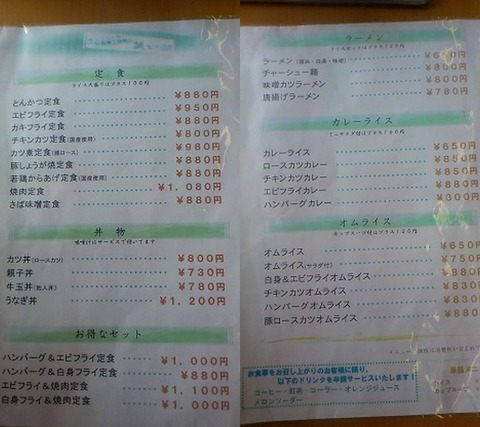 定食
ライス大盛りはプラス100円
とんかつ定食 ￥880円
エビフライ定食 ￥950円
カキフライ定食 ￥880円
チキンカツ定食(国産使用) ￥800円
カツ煮定食(豚ロース) ￥980円
豚しょうが焼定食 ￥880円
若鶏からあげ定食(国産使用) ￥880円
焼肉定食 ￥1,080円
さば味噌定食 ￥880円
丼物
味噌汁はサービスで付いてます
カツ丼(ロースカツ) ￥800円
親子丼 ￥730円
牛玉丼 ￥780円
うなぎ丼 ￥1,200円
お得なセット
ハンバーグ＆エビフライ定食 ￥1,000円
ハンバーグ＆白身フライ定食 ￥880円
エビフライ＆焼肉定食 ￥1,100円
白身フライ＆焼肉定食 ￥1,000円
ラーメン
ラーメン
チャーシュー麺 ￥800円
味噌カツラーメン ￥800円
唐揚げラーメン ￥780円
カレーライス
ミニサラダ付はプラス100円
カレーライス ￥650
ロースカツカレー ￥850
チキンカツカレー ￥850
エビフライカレー ￥880
ハンバーグカレー ￥800
オムライス
カップスープ付はプラス120円
オムライス ￥650
オムライス(サラダ付) ￥750
白身＆エビフライオムライス ￥880
チキンカツオムライス
ハンバーグオムライス
豚ロースカツオムライス
お食事をお召し上がりのお客様に限り、
以下のドリンクを半額サービスいたします！
コーヒー・紅茶・コーラー・オレンジジュース
メロンソーダー
単品メニ
ライス
カップスープ